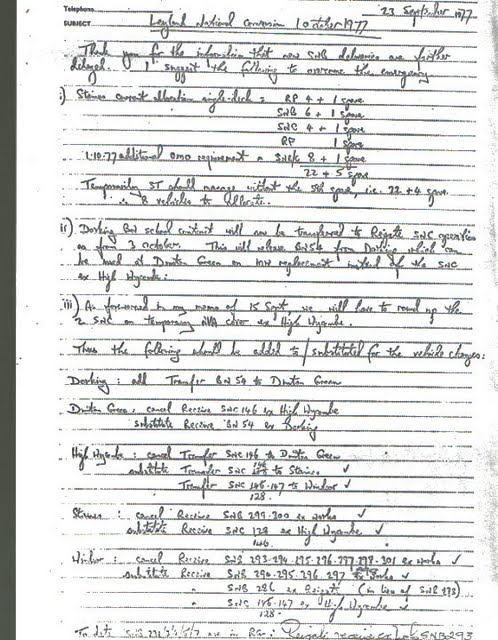 Telephone
23 September 1977
SUBJECT Leyland National Conversion 1 October 1977
Thank you for the information that new SNB deliveries are further
delayed. I suggest the following to overcome this emergency
i) Staines current allocation single-deck = RP 4 + 1 spare
SNB 6 + 1 spare
SNC 4 + 1 spare
RP 1 spare
1.10.77 additional OMO requirement 8 + 1 spare
22 + 5 spare
Temporarily ST should manage without the 5th spare, i.e. 22 + 4 spare
∴ 8 vehicles to allocate.
ii) Dorking BN school contract will now be transferred to Reigate SNC operation
as from 3 October. This will release BN54 from Dorking which can
be used at Dunton Green on MW replacement instead of the SNC
ex High Wycombe.
iii) As forewarned in my memo of 15 Sept, we will have to round up the
2 SNC on temporary cover ex High Wycombe.
Thus the following should be added to / substituted for the vehicle changes:
Dorking : add Transfer BN 54 to Dunton Green
Dunton Green : cancel Receive SNC 146 ex High Wycombe
substitute Receive BN 54 ex Dorking
High Wycombe : cancel Transfer SNC 146 to Dunton Green
substitute Transfer SNC 146 to Staines ✓
Transfer SNC 147 to Windsor ✓
128.
Staines : cancel Receive SNB 299-300 ex works ✓
substitute Receive SNC 128 ex High Wycombe ✓
146.
Windsor : cancel Receive SNB 293-294-295-296-297-298-301 ex works ✓
substitute Receive SNB 294-295-296-297 ex works ✓
" SNB 286 ex Reigate (in lieu of SNB 293)
" SNC 147 ex High Wycombe ✓
128.
To date SNB are in
SNB293